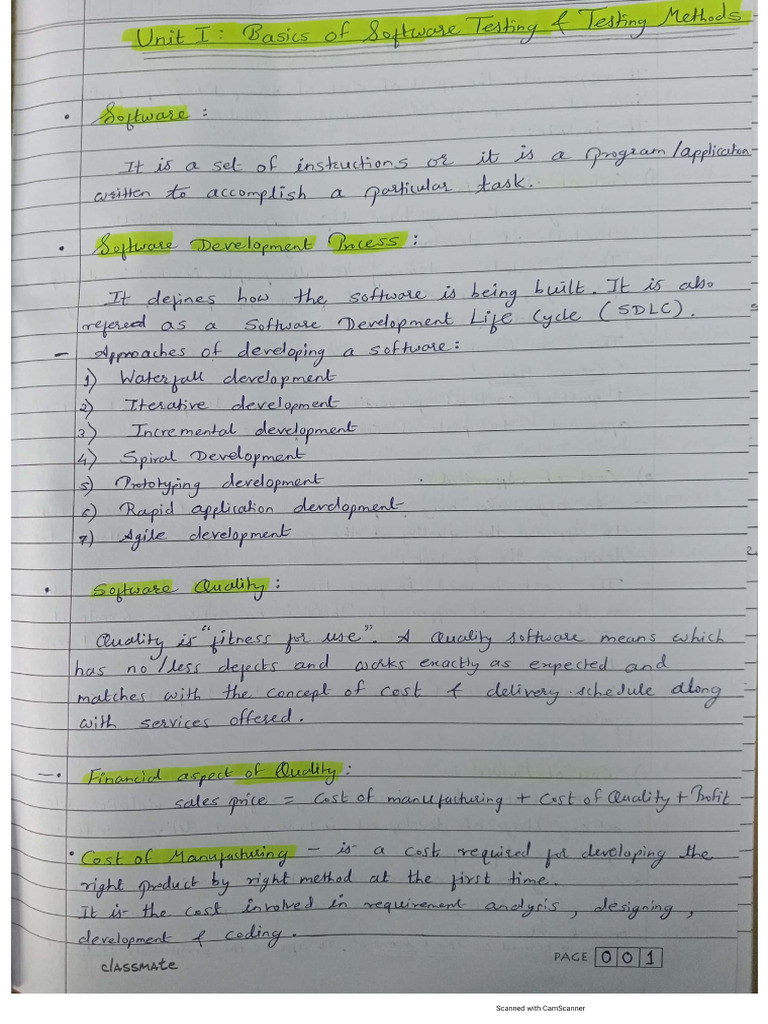 Unit I: Basics of Software Testing & Testing Methods
• Software :
It is a set of instructions or it is a program/application
written to accomplish a particular task.
• Software Development Process :
It defines how the software is being built. It is also
refered as a Software Development Life Cycle (SDLC).
- Approaches of developing a software:
1) Waterfall development
2) Iterative development
3) Incremental development
4) Spiral Development
5) Prototyping development
6) Rapid application development
7) Agile development
• Software Quality :
Quality is "fitness for use". A Quality software means which
has no/less defects and works exactly as expected and
matches with the concept of cost & delivery schedule along
with services offered.
-• Financial aspect of Quality :
sales price = Cost of manufacturing + Cost of Quality + Profit
• Cost of Manufacturing - is a cost required for developing the
right product by right method at the first time.
It is the cost involved in requirement analysis, designing,
development & coding.
classmate PAGE 001
Scanned with CamScanner